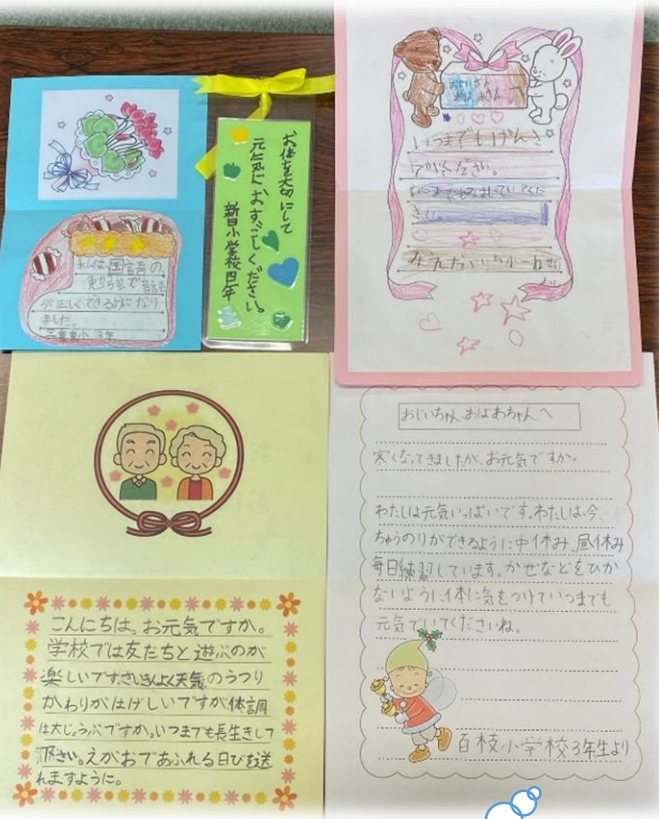 わたしは国語の
勉強で音読
が正しくできるようになり
ました。
三重東小 三年
お体を大切にして
元気におすごしください。
新田小学校四年
おじいさん
おばあさんへ
いつまでもげんき
でいてください。
いつまでも
おじいちゃん、おばあちゃんへ
寒くなってきましたが、お元気ですか。
わたしは元気いっぱいです。わたしは、今、
ちゅうのりができるように中休み、昼休み
毎日練習しています。かぜなどをひか
ないように体に気をつけていつまでも
元気でいてくださいね。
百枝小学校3年生より
こんにちは。お元気ですか。
学校では友だちと遊ぶのが
楽しいです。さいきんよく天気のうつり
かわりがはげしいですが体調
は大じょうぶですか。いつまでも長生きして
下さい。えがおであふれる日びを送
れますように。